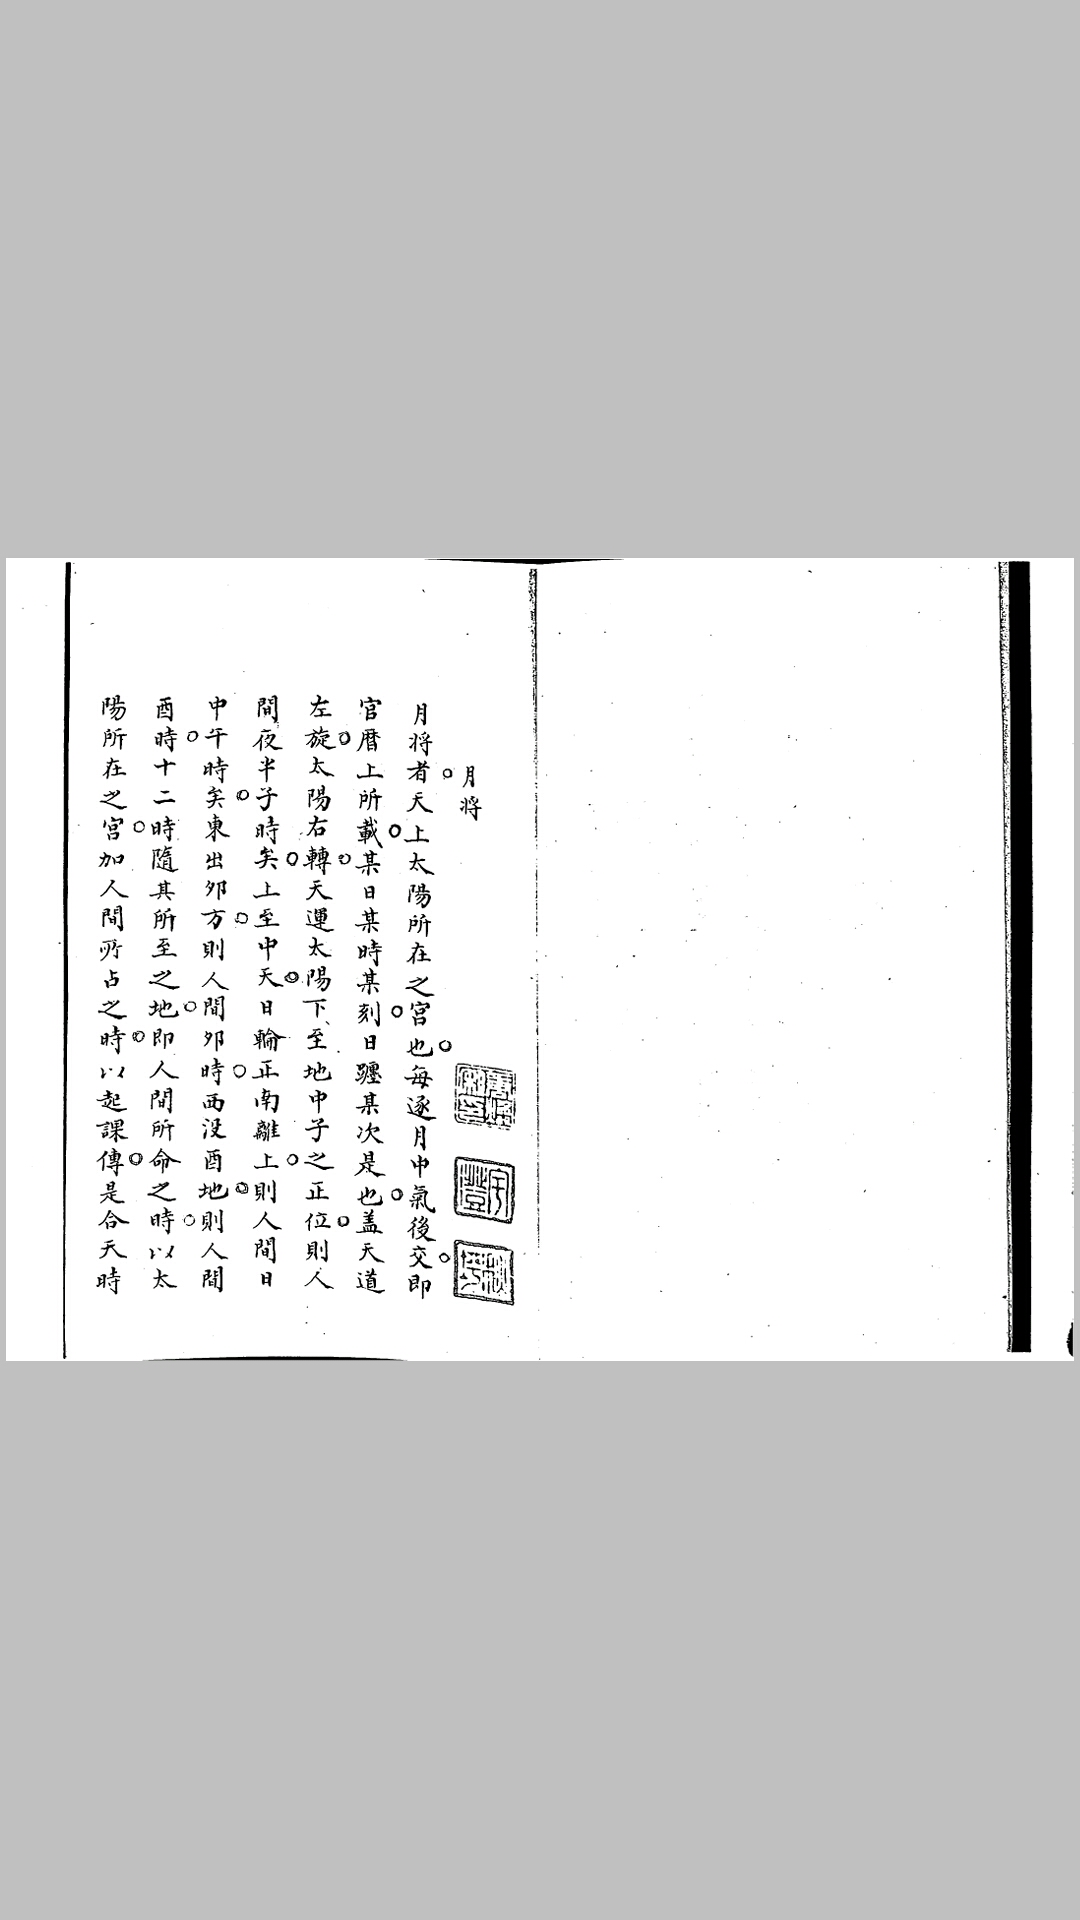 月将
月将者天上太陽所在之宫也每逐月中氣後交即
官暦上所載某日某時某刻日躔某次是也盖天道
左旋太陽右轉天運太陽下至地中子之正位則人
間夜半子時矣上至中天日輪正南離上則人間日
中午時矣東出夘方則人間夘時西没酉地則人間
酉時十二時隨其所至之地即人間所命之時以太
陽所在之宫加人間所占之時以起課傳是合天時